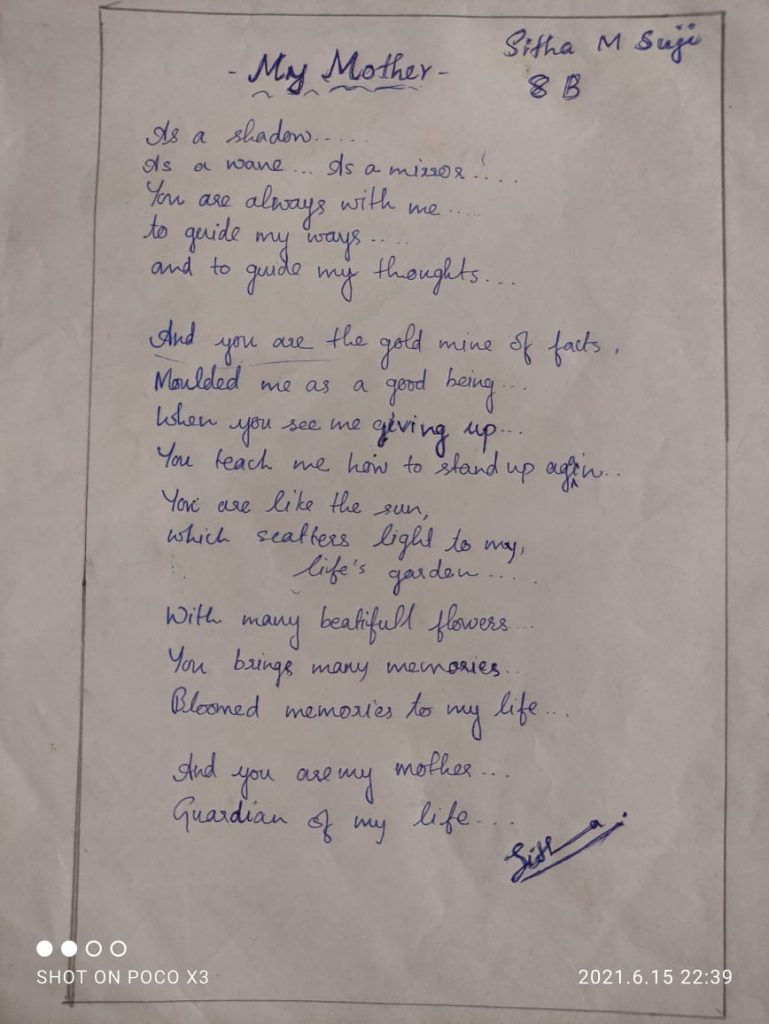 - My Mother -
Sitha M Suji
8 B
As a shadow.....
As a wave... As a mirror!....
You are always with me....
to guide my ways....
and to guide my thoughts...
And you are the gold mine of facts,
Moulded me as a good being...
When you see me giving up...
You teach me how to stand up again..
You are like the sun,
which scatters light to my,
life's garden.....
With many beatifull flowers...
You brings many memories...
Bloomed memories to my life...
And you are my mother...
Guardian of my life...
Sitha
SHOT ON POCO X3
2021.6.15 22:39